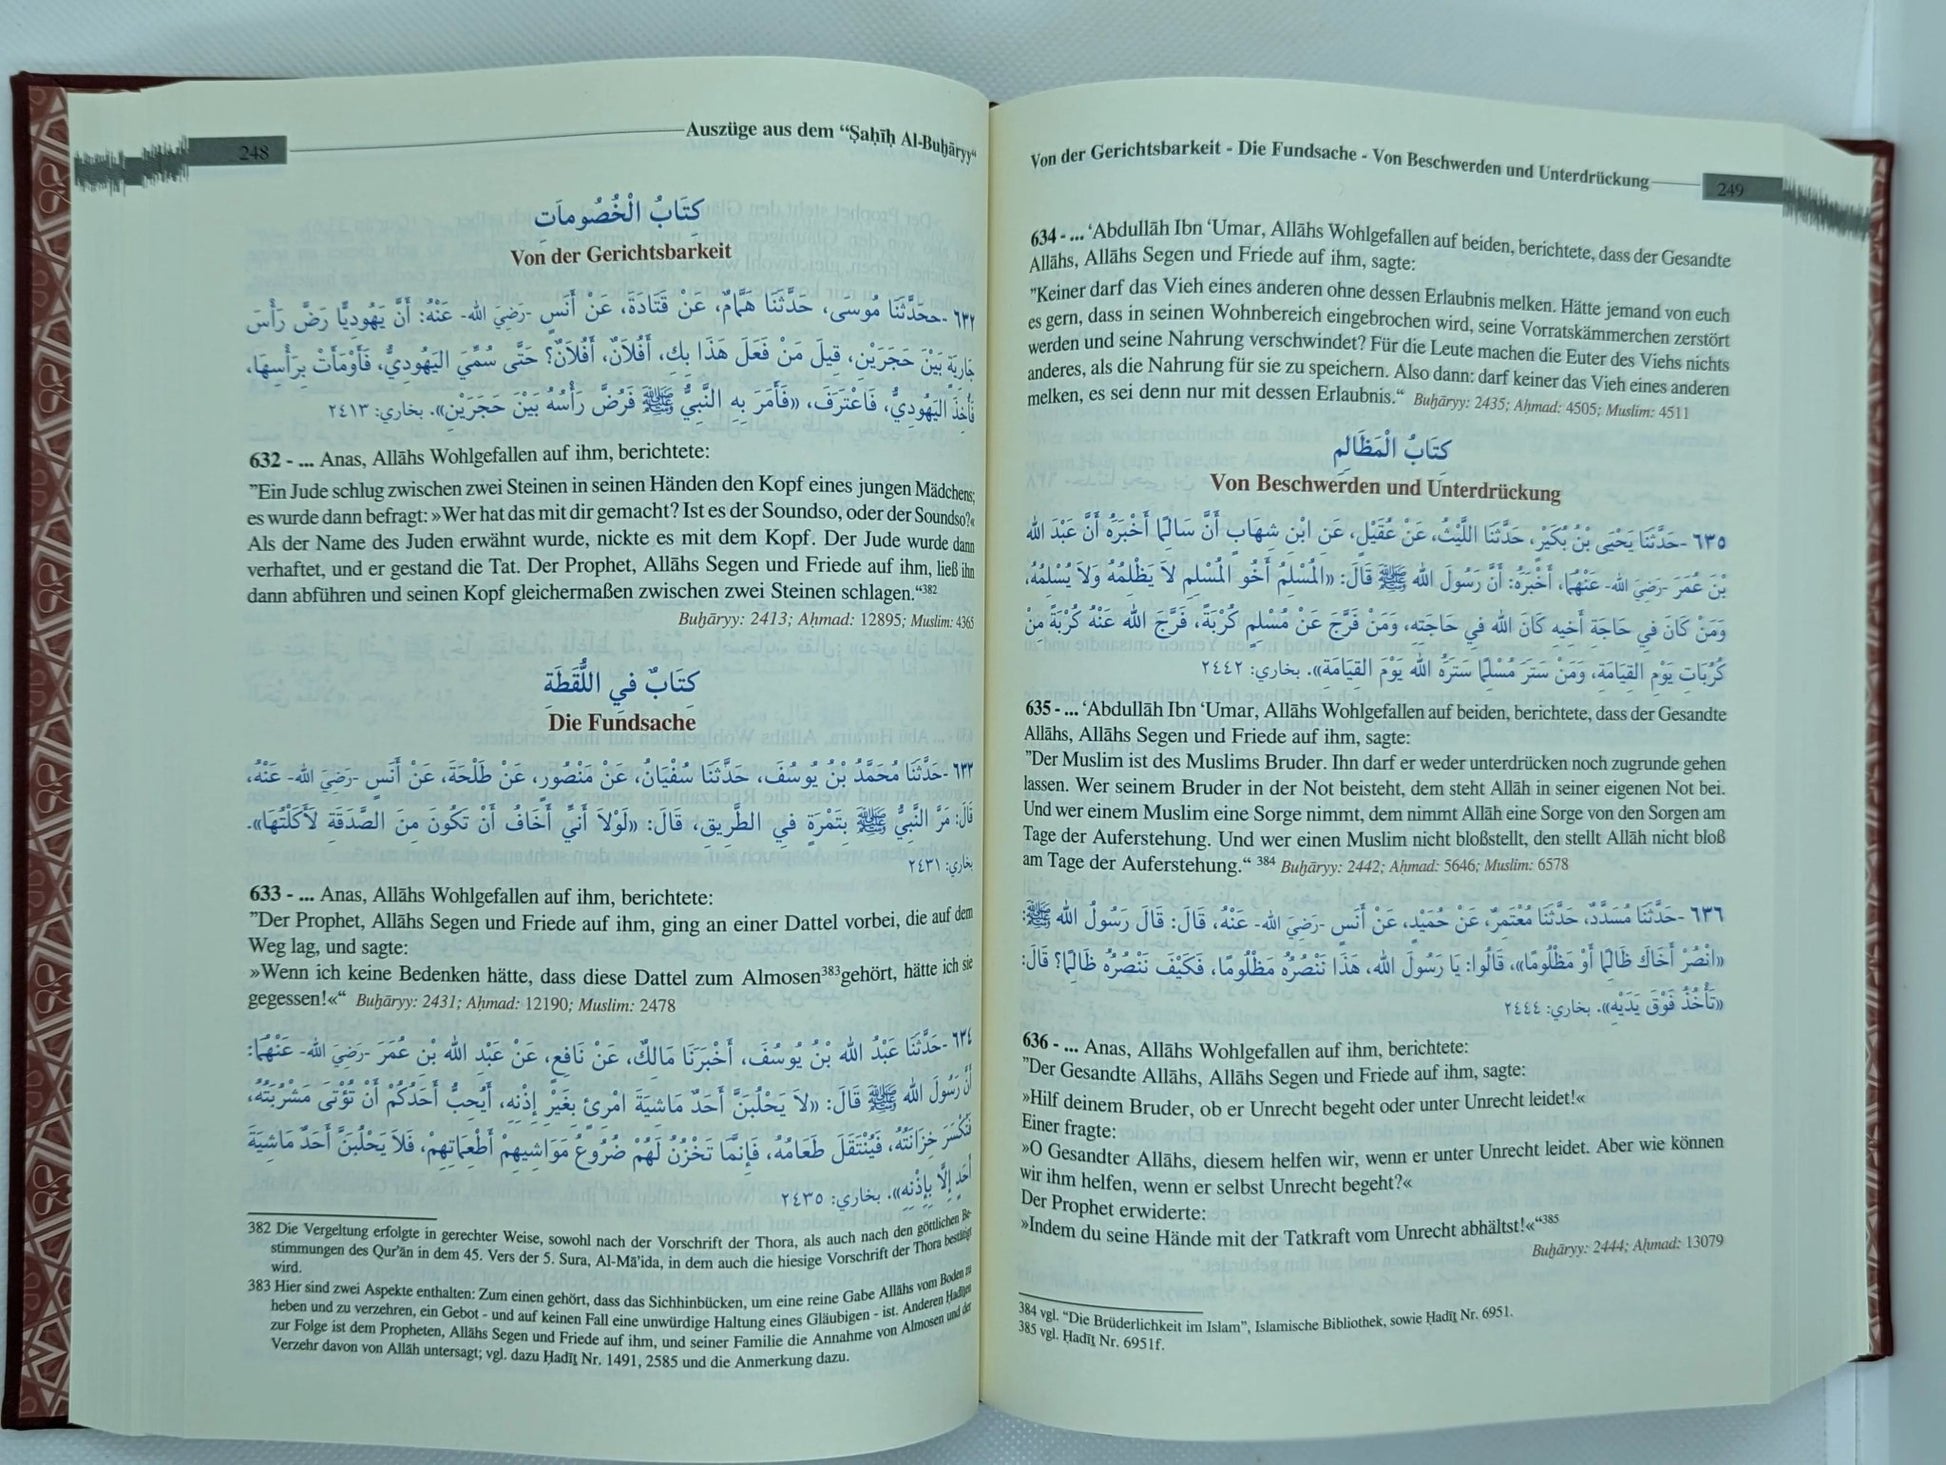 248
Auszüge aus dem “Ṣaḥīḥ Al-Buḫāryy“
كِتَابُ الْخُصُومَاَتِ
Von der Gerichtsbarkeit
٦٣٢ -ححَدَّثَنَا مُوسَى، حَدَّثَنَا هَمَّامٌ، عَنْ قَتَادَةَ، عَنْ أَنَسٍ -رَضِيَ الله- عَنْهُ: أَنَّ يَهُودِيًّا رَضَّ رَأْسَ
جَارِيَةٍ بَيْنَ حَجَرَيْنِ، قِيلَ مَنْ فَعَلَ هَذَا بِكِ، أَفُلاَنٌ، أَفُلاَنٌ؟ حَتَّى سُمِّيَ اليَهُودِيُّ، فَأَوْمَأَتْ بِرَأْسِهَا،
فَأُخِذَ اليَهُودِيُّ، فَاعْتَرَفَ، «فَأَمَرَ بِهِ النَّبِيُّ ﷺ فَرُضَّ رَأْسُهُ بَيْنَ حَجَرَيْنِ». بخاري: ٢٤١٣
632 - ... Anas, Allāhs Wohlgefallen auf ihm, berichtete:
”Ein Jude schlug zwischen zwei Steinen in seinen Händen den Kopf eines jungen Mädchens;
es wurde dann befragt: »Wer hat das mit dir gemacht? Ist es der Soundso, oder der Soundso?«
Als der Name des Juden erwähnt wurde, nickte es mit dem Kopf. Der Jude wurde dann
verhaftet, und er gestand die Tat. Der Prophet, Allāhs Segen und Friede auf ihm, ließ ihn
dann abführen und seinen Kopf gleichermaßen zwischen zwei Steinen schlagen.“382
Buḫāryy: 2413; Aḥmad: 12895; Muslim: 4365
كِتَابٌ فِي اللُّقَطَةِ
Die Fundsache
٦٣٣ -حَدَّثَنَا مُحَمَّدُ بْنُ يُوسُفَ، حَدَّثَنَا سُفْيَانُ، عَنْ مَنْصُورٍ، عَنْ طَلْحَةَ، عَنْ أَنَسٍ -رَضِيَ الله- عَنْهُ،
قَالَ: مَرَّ النَّبِيُّ ﷺ بِتَمْرَةٍ فِي الطَّرِيقِ، قَالَ: «لَوْلاَ أَنِّي أَخَافُ أَنْ تَكُونَ مِنَ الصَّدَقَةِ لَأَكَلْتُهَا».
بخاري: ٢٤٣١
633 - ... Anas, Allāhs Wohlgefallen auf ihm, berichtete:
”Der Prophet, Allāhs Segen und Friede auf ihm, ging an einer Dattel vorbei, die auf dem
Weg lag, und sagte:
»Wenn ich keine Bedenken hätte, dass diese Dattel zum Almosen383gehört, hätte ich sie
gegessen!«“ Buḫāryy: 2431; Aḥmad: 12190; Muslim: 2478
٦٣٤ -حَدَّثَنَا عَبْدُ الله بْنُ يُوسُفَ، أَخْبَرَنَا مَالِكٌ، عَنْ نَافِعٍ، عَنْ عَبْدِ الله بْنِ عُمَرَ -رَضِيَ الله- عَنْهُمَا:
أَنَّ رَسُولَ الله ﷺ قَالَ: «لاَ يَحْلُبَنَّ أَحَدٌ مَاشِيَةَ امْرِئٍ بِغَيْرِ إِذْنِهِ، أَيُحِبُّ أَحَدُكُمْ أَنْ تُؤْتَى مَشْرُبَتُهُ،
فَتُكْسَرَ خِزَانَتُهُ، فَيُنْتَقَلَ طَعَامُهُ، فَإِنَّمَا تَخْزُنُ لَهُمْ ضُرُوعُ مَوَاشِيهِمْ أَطْعِمَاتِهِمْ، فَلاَ يَحْلُبَنَّ أَحَدٌ مَاشِيَةَ
أَحَدٍ إِلَّا بِإِذْنِهِ». بخاري: ٢٤٣٥
382 Die Vergeltung erfolgte in gerechter Weise, sowohl nach der Vorschrift der Thora, als auch nach den göttlichen Be-
stimmungen des Qur’ān in dem 45. Vers der 5. Sura, Al-Mā’ida, in dem auch die hiesige Vorschrift der Thora bestätigt
wird.
383 Hier sind zwei Aspekte enthalten: Zum einen gehört, dass das Sichhinbücken, um eine reine Gabe Allāhs vom Boden zu
heben und zu verzehren, ein Gebot - und auf keinen Fall eine unwürdige Haltung eines Gläubigen - ist. Anderen Ḥadīṯen
zur Folge ist dem Propheten, Allāhs Segen und Friede auf ihm, und seiner Familie die Annahme von Almosen und der
Verzehr davon von Allāh untersagt; vgl. dazu Ḥadīṯ Nr. 1491, 2585 und die Anmerkung dazu.
Von der Gerichtsbarkeit - Die Fundsache - Von Beschwerden und Unterdrückung
249
634 - ... ‘Abdullāh Ibn ‘Umar, Allāhs Wohlgefallen auf beiden, berichtete, dass der Gesandte
Allāhs, Allāhs Segen und Friede auf ihm, sagte:
”Keiner darf das Vieh eines anderen ohne dessen Erlaubnis melken. Hätte jemand von euch
es gern, dass in seinen Wohnbereich eingebrochen wird, seine Vorratskämmerchen zerstört
werden und seine Nahrung verschwindet? Für die Leute machen die Euter des Viehs nichts
anderes, als die Nahrung für sie zu speichern. Also dann: darf keiner das Vieh eines anderen
melken, es sei denn nur mit dessen Erlaubnis.“ Buḫāryy: 2435; Aḥmad: 4505; Muslim: 4511
كِتَابُ الْمَظَالِمِ
Von Beschwerden und Unterdrückung
٦٣٥ -حَدَّثَنَا يَحْيَى بْنُ بُكَيْرٍ، حَدَّثَنَا اللَّيْثُ، عَنْ عُقَيْلٍ، عَنِ ابْنِ شِهَابٍ أَنَّ سَالِمًا أَخْبَرَهُ أَنَّ عَبْدَ الله
بْنَ عُمَرَ -رَضِيَ الله- عَنْهُمَا، أَخْبَرَهُ: أَنَّ رَسُولَ الله ﷺ قَالَ: «الْمُسْلِمُ أَخُو الْمُسْلِمِ لاَ يَظْلِمُهُ وَلاَ يُسْلِمُهُ،
وَمَنْ كَانَ فِي حَاجَةِ أَخِيهِ كَانَ الله فِي حَاجَتِهِ، وَمَنْ فَرَّجَ عَنْ مُسْلِمٍ كُرْبَةً، فَرَّجَ الله عَنْهُ كُرْبَةً مِنْ
كُرُبَاتِ يَوْمِ القِيَامَةِ، وَمَنْ سَتَرَ مُسْلِمًا سَتَرَهُ الله يَوْمَ القِيَامَةِ». بخاري: ٢٤٤٢
635 - ... ‘Abdullāh Ibn ‘Umar, Allāhs Wohlgefallen auf beiden, berichtete, dass der Gesandte
Allāhs, Allāhs Segen und Friede auf ihm, sagte:
”Der Muslim ist des Muslims Bruder. Ihn darf er weder unterdrücken noch zugrunde gehen
lassen. Wer seinem Bruder in der Not beisteht, dem steht Allāh in seiner eigenen Not bei.
Und wer einem Muslim eine Sorge nimmt, dem nimmt Allāh eine Sorge von den Sorgen am
Tage der Auferstehung. Und wer einen Muslim nicht bloßstellt, den stellt Allāh nicht bloß
am Tage der Auferstehung.“ 384 Buḫāryy: 2442; Aḥmad: 5646; Muslim: 6578
٦٣٦ -حَدَّثَنَا مُسَدَّدٌ، حَدَّثَنَا مُعْتَمِرٌ، عَنْ حُمَيْدٍ، عَنْ أَنَسٍ -رَضِيَ الله- عَنْهُ، قَالَ: قَالَ رَسُولُ الله ﷺ:
«انْصُرْ أَخَاكَ ظَالِمًا أَوْ مَظْلُومًا»، قَالُوا: يَا رَسُولَ الله، هَذَا نَنْصُرُهُ مَظْلُومًا، فَكَيْفَ نَنْصُرُهُ ظَالِمًا؟ قَالَ:
«تَأْخُذُ فَوْقَ يَدَيْهِ». بخاري: ٢٤٤٤
636 - ... Anas, Allāhs Wohlgefallen auf ihm, berichtete:
”Der Gesandte Allāhs, Allāhs Segen und Friede auf ihm, sagte:
»Hilf deinem Bruder, ob er Unrecht begeht oder unter Unrecht leidet!«
Einer fragte:
»O Gesandter Allāhs, diesem helfen wir, wenn er unter Unrecht leidet. Aber wie können
wir ihm helfen, wenn er selbst Unrecht begeht?«
Der Prophet erwiderte:
»Indem du seine Hände mit der Tatkraft vom Unrecht abhältst!«“385
Buḫāryy: 2444; Aḥmad: 13079
384 vgl. “Die Brüderlichkeit im Islam”, Islamische Bibliothek, sowie Ḥadīṯ Nr. 6951.
385 vgl. Ḥadīṯ Nr. 6951f.